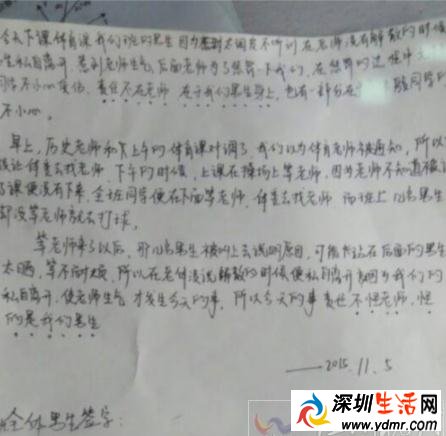 今天下课体育课我们班的男生因为 太 没有解散的时候
私自离开,惹到老师生气,后面老师为了惩罚一下我们,在惩罚的过程中
同学不小心受伤,责任不在老师 在于我们男生身上,也有一部分在 同学的
不小心。
早上,历史老师和下午的体育课对调了 我们以为体育老师被通知,所以
没让体委去找老师,下午的时候,上课在操场上等老师,因为老师不知道被
了课便没有下来,全班同学便在下面等老师,体委去找老师 而班上几名男生
却没等老师就去打球。
等老师来了以后,那几名男生被叫上去说明原因,可能 站在后面的男生
太晒,等不耐烦,所以在老师没说解散的时候便私自离开 因为我们的
私自离开,使老师生气 才发生今天的事,所以今天的事责任不怪老师,怪
的是我们男生
——2015.11.5
全体男生签字:
深圳生活网
www.ydmr.com